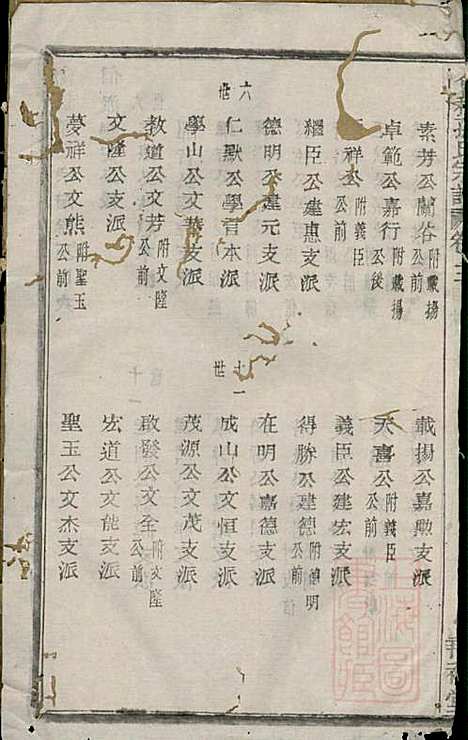 素芳公蘭谷附載揚公前
卓範公嘉行附載揚公後
祥公附義臣公前
繩臣公建惠支派
德明公建元支派
六世
仁默公學晉本派
學山公文華支派
教道公文芳附文隆公前
文隆公支派
夢祥公文熊附聖玉公前
載揚公嘉勲支派
天喜公附義臣公前
義臣公建宏支派
得勝公建德附德明公前
在明公嘉德支派
十一世
成山公文恒支派
茂源公文茂支派
啟發公文全附文隆公前
宏道公文能支派
聖玉公文杰支派
上海圖書館